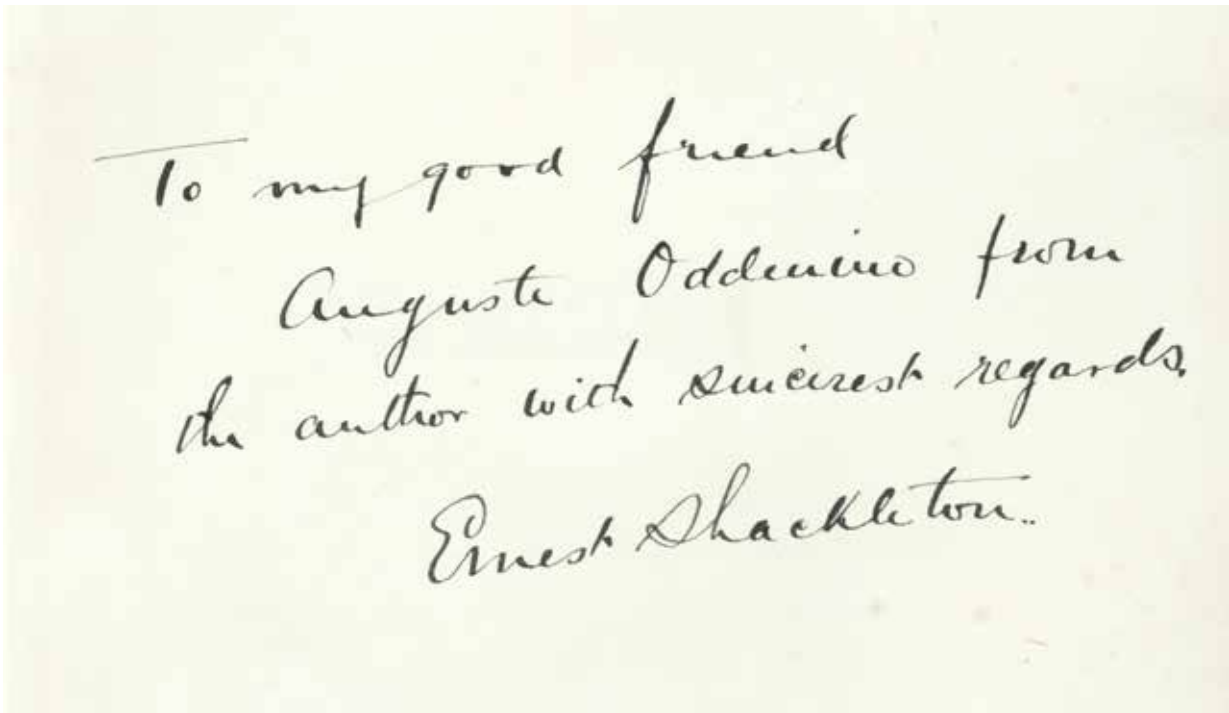 To my good friend
Auguste Oddenino from
the author with sincerest regards.
Ernest Shackleton..